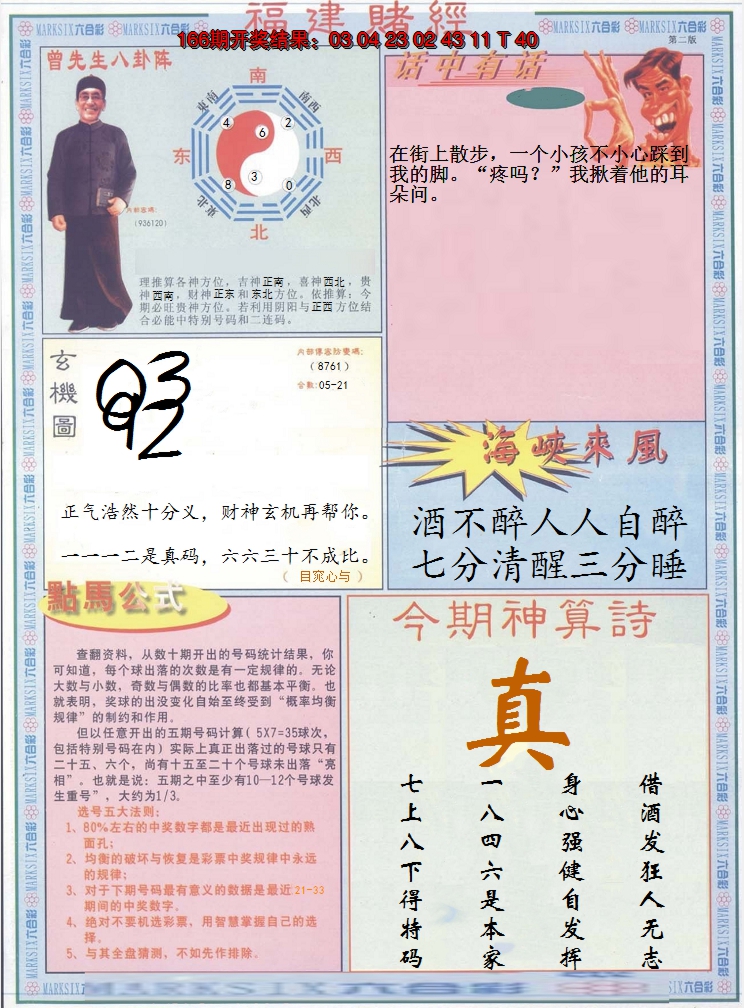 福建賭經
166期开奖结果：03 04 23 02 43 11 T 40
MARKSIX六合彩
第二版
曾先生八卦陈
南
东南
南西
4
2
6
东
西
3
8
0
東北
北西
北
(936120)
理推算各神方位，吉神正南，喜神西北，贵
神西南，财神正东和东北方位。依推算：今
期必旺贵神方位。若利用阴阳与正西方位结
合必能中特别号码和二连码。
话中有话
在街上散步，一个小孩不小心踩到
我的脚。“疼吗？”我揪着他的耳
朵问。
玄機圖
(8761)
合数:05-21
正气浩然十分义，财神玄机再帮你。
一一一二是真码，六六三十不成比。
（ 目窕心与 ）
海峽來風
酒不醉人人自醉
七分清醒三分睡
點馬公式
查翻资料，从数十期开出的号码统计结果，你
可知道，每个球出落的次数是有一定规律的。无论
大数与小数，奇数与偶数的比率也都基本平衡。也
就表明，奖球的出没变化自始至终受到“概率均衡
规律”的制约和作用。
但以任意开出的五期号码计算( 5X7=35球次，
包括特别号码在内) 实际上真正出落过的号球只有
二十五、六个，尚有十五至二十个号球未出落“亮
相”。也就是说：五期之中至少有10—12个号球发
生重号”，大约为1/3。
选号五大法则：
1、80%左右的中奖数字都是最近出现过的熟
面孔；
2、均衡的破坏与恢复是彩票中奖规律中永远
的规律；
3、对于下期号码最有意义的数据是最近21-33
期间的中奖数字。
4、绝对不要机选彩票，用智慧掌握自己的选
择。
5、与其全盘猜测，不如先作排除．
今期神算詩
真
借酒发狂人无志
身心强健自发挥
一八四六是本家
七上八下得特码